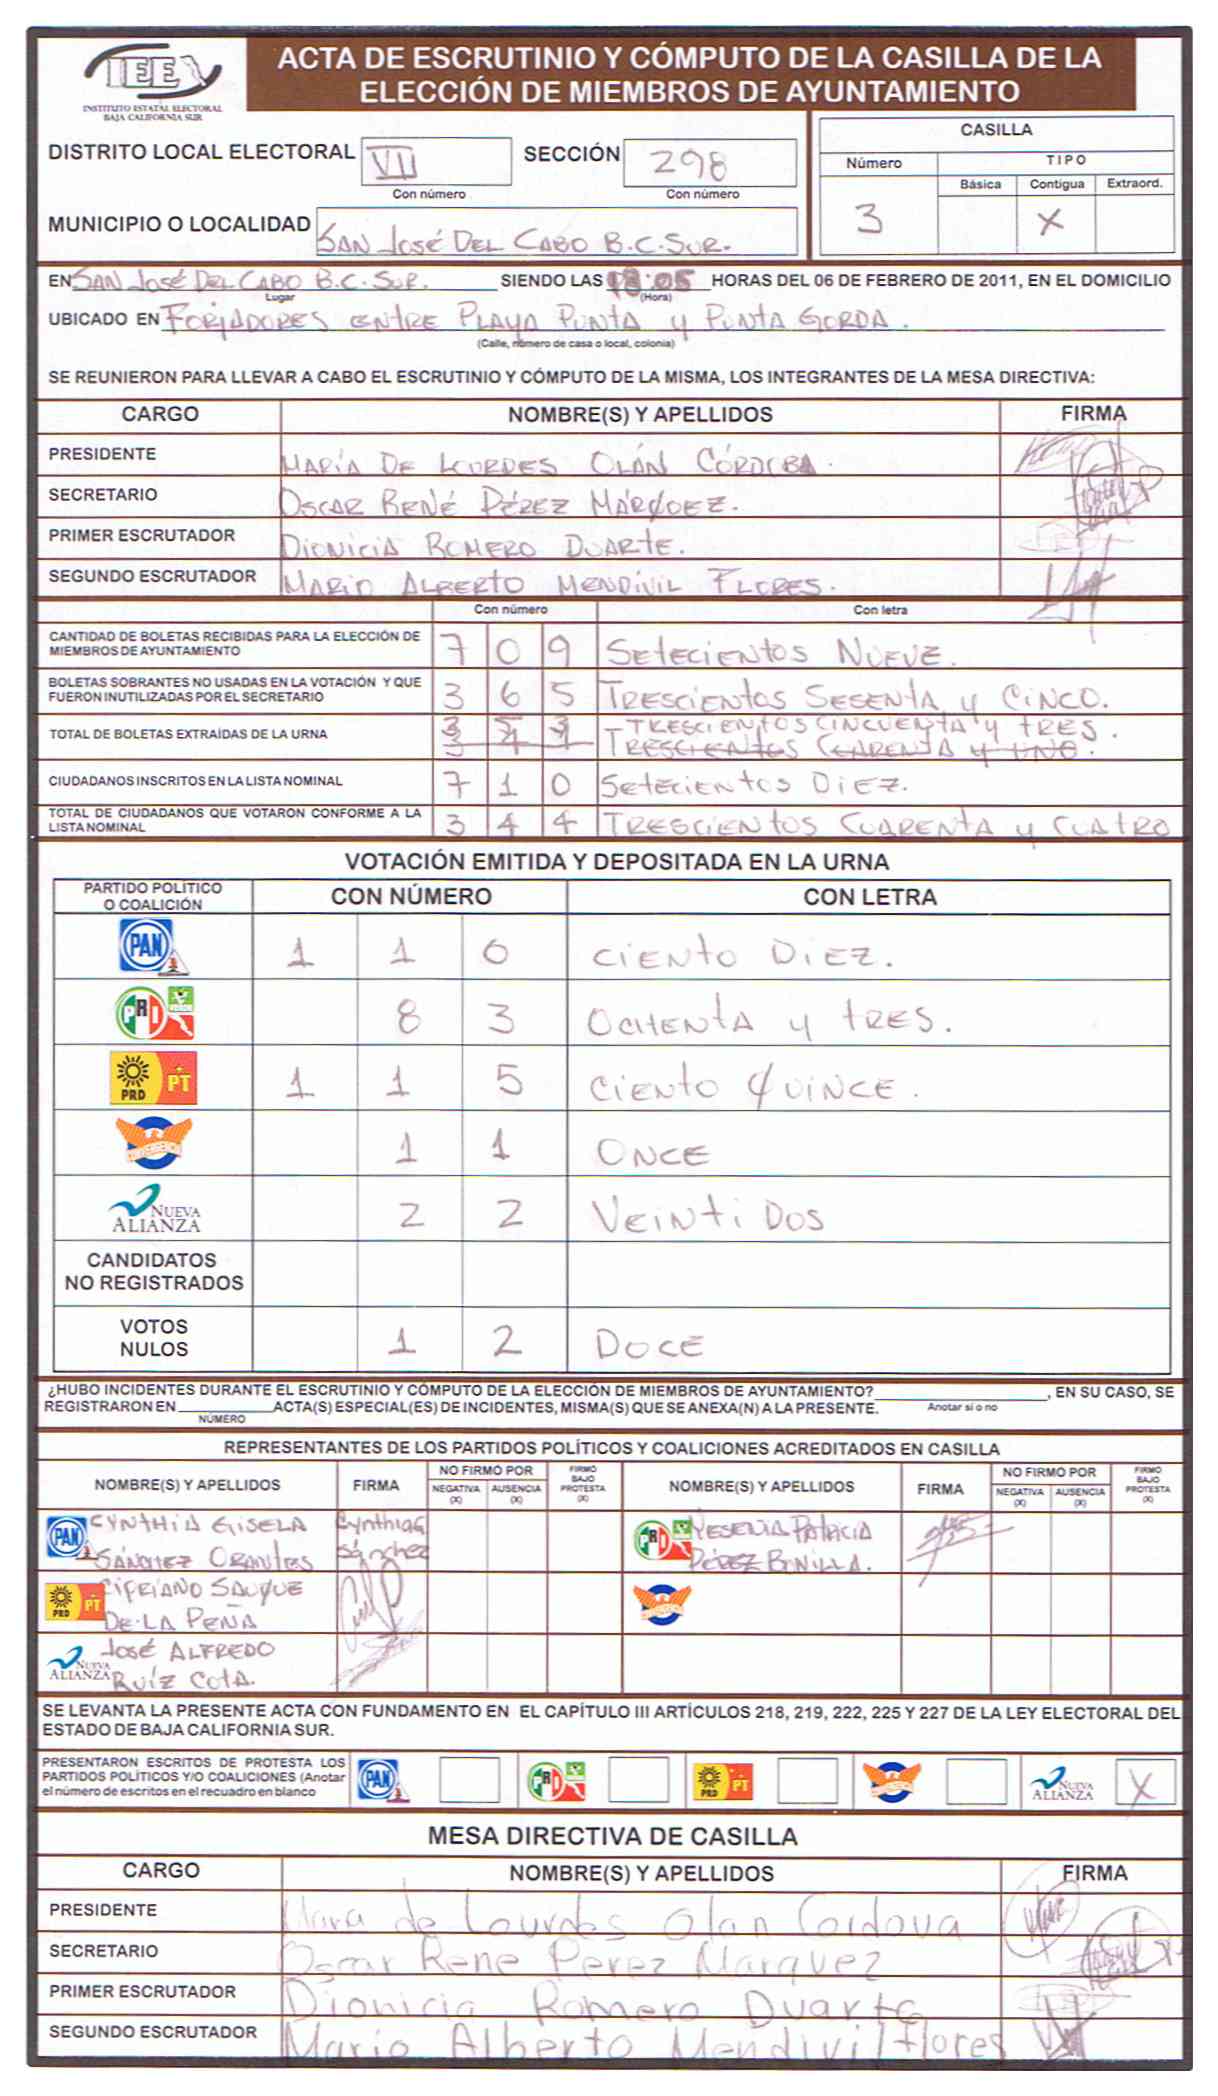 IEE
INSTITUTO ESTATAL ELECTORAL
BAJA CALIFORNIA SUR
ACTA DE ESCRUTINIO Y CÓMPUTO DE LA CASILLA DE LA
ELECCIÓN DE MIEMBROS DE AYUNTAMIENTO
DISTRITO LOCAL ELECTORAL VII SECCIÓN 298
Con número Con número
MUNICIPIO O LOCALIDAD SAN JOSÉ DEL CABO B.C. SUR.
CASILLA
Número TIPO
Básica Contigua Extraord.
3 X
EN SAN JOSÉ DEL CABO B.C. SUR. SIENDO LAS 18:05 HORAS DEL 06 DE FEBRERO DE 2011, EN EL DOMICILIO
Lugar (Hora)
UBICADO EN FORJADORES ENTRE PLAYA PUNTA y PUNTA GORDA.
(Calle, número de casa o local, colonia)
SE REUNIERON PARA LLEVAR A CABO EL ESCRUTINIO Y CÓMPUTO DE LA MISMA, LOS INTEGRANTES DE LA MESA DIRECTIVA:
CARGO NOMBRE(S) Y APELLIDOS FIRMA
PRESIDENTE MARÍA DE LOURDES OLÁN CÓRDOBA.
SECRETARIO OSCAR RENÉ PÉREZ MÁRQUEZ.
PRIMER ESCRUTADOR DIONICIA ROMERO DUARTE.
SEGUNDO ESCRUTADOR MARIO ALBERTO MENDÍVIL FLORES.
Con número Con letra
CANTIDAD DE BOLETAS RECIBIDAS PARA LA ELECCIÓN DE
MIEMBROS DE AYUNTAMIENTO 7 0 9 SETECIENTOS NUEVE.
BOLETAS SOBRANTES NO USADAS EN LA VOTACIÓN Y QUE
FUERON INUTILIZADAS POR EL SECRETARIO 3 6 5 TRESCIENTOS SESENTA y CINCO.
3 5 3 TRESCIENTOS CINCUENTA y TRES.
TOTAL DE BOLETAS EXTRAÍDAS DE LA URNA 3 4 1 TRESCIENTOS CUARENTA y UNO.
CIUDADANOS INSCRITOS EN LA LISTA NOMINAL 7 1 0 SETECIENTOS DIEZ.
TOTAL DE CIUDADANOS QUE VOTARON CONFORME A LA
LISTA NOMINAL 3 4 4 TRESCIENTOS CUARENTA y CUATRO
VOTACIÓN EMITIDA Y DEPOSITADA EN LA URNA
PARTIDO POLÍTICO
O COALICIÓN CON NÚMERO CON LETRA
PAN 1 1 0 CIENTO DIEZ.
PRI 8 3 OCHENTA y TRES.
PRD PT 1 1 5 CIENTO QUINCE.
1 1 ONCE
NUEVA ALIANZA 2 2 VEINTIDOS
CANDIDATOS
NO REGISTRADOS
VOTOS
NULOS 1 2 DOCE
¿HUBO INCIDENTES DURANTE EL ESCRUTINIO Y CÓMPUTO DE LA ELECCIÓN DE MIEMBROS DE AYUNTAMIENTO? , EN SU CASO, SE
REGISTRARON EN ACTA(S) ESPECIAL(ES) DE INCIDENTES, MISMA(S) QUE SE ANEXA(N) A LA PRESENTE. Anotar si o no
NÚMERO
REPRESENTANTES DE LOS PARTIDOS POLÍTICOS Y COALICIONES ACREDITADOS EN CASILLA
NOMBRE(S) Y APELLIDOS FIRMA NO FIRMÓ POR NEGATIVA (X) AUSENCIA (X) FIRMÓ BAJO PROTESTA (X) NOMBRE(S) Y APELLIDOS FIRMA NO FIRMÓ POR NEGATIVA (X) AUSENCIA (X) FIRMÓ BAJO PROTESTA (X)
PAN CYNTHIA GISELA Cynthia G PRI YESENIA PATRICIA
SÁNCHEZ ORANTES Sánchez PÉREZ BONILLA.
PRD PT CIPRIANO SAUQUE
DE LA PEÑA
NUEVA ALIANZA JOSÉ ALFREDO
RUÍZ COTA.
SE LEVANTA LA PRESENTE ACTA CON FUNDAMENTO EN EL CAPÍTULO III ARTÍCULOS 218, 219, 222, 225 Y 227 DE LA LEY ELECTORAL DEL
ESTADO DE BAJA CALIFORNIA SUR.
PRESENTARON ESCRITOS DE PROTESTA LOS
PARTIDOS POLÍTICOS Y/O COALICIONES (Anotar
el número de escritos en el recuadro en blanco PAN PRI PRD PT NUEVA ALIANZA X
MESA DIRECTIVA DE CASILLA
CARGO NOMBRE(S) Y APELLIDOS FIRMA
PRESIDENTE Mara de Lourdes Olan Cordova
SECRETARIO Oscar Rene Perez Marquez
PRIMER ESCRUTADOR Dionicia Romero Duarte
SEGUNDO ESCRUTADOR Mario Alberto Mendivil Flores